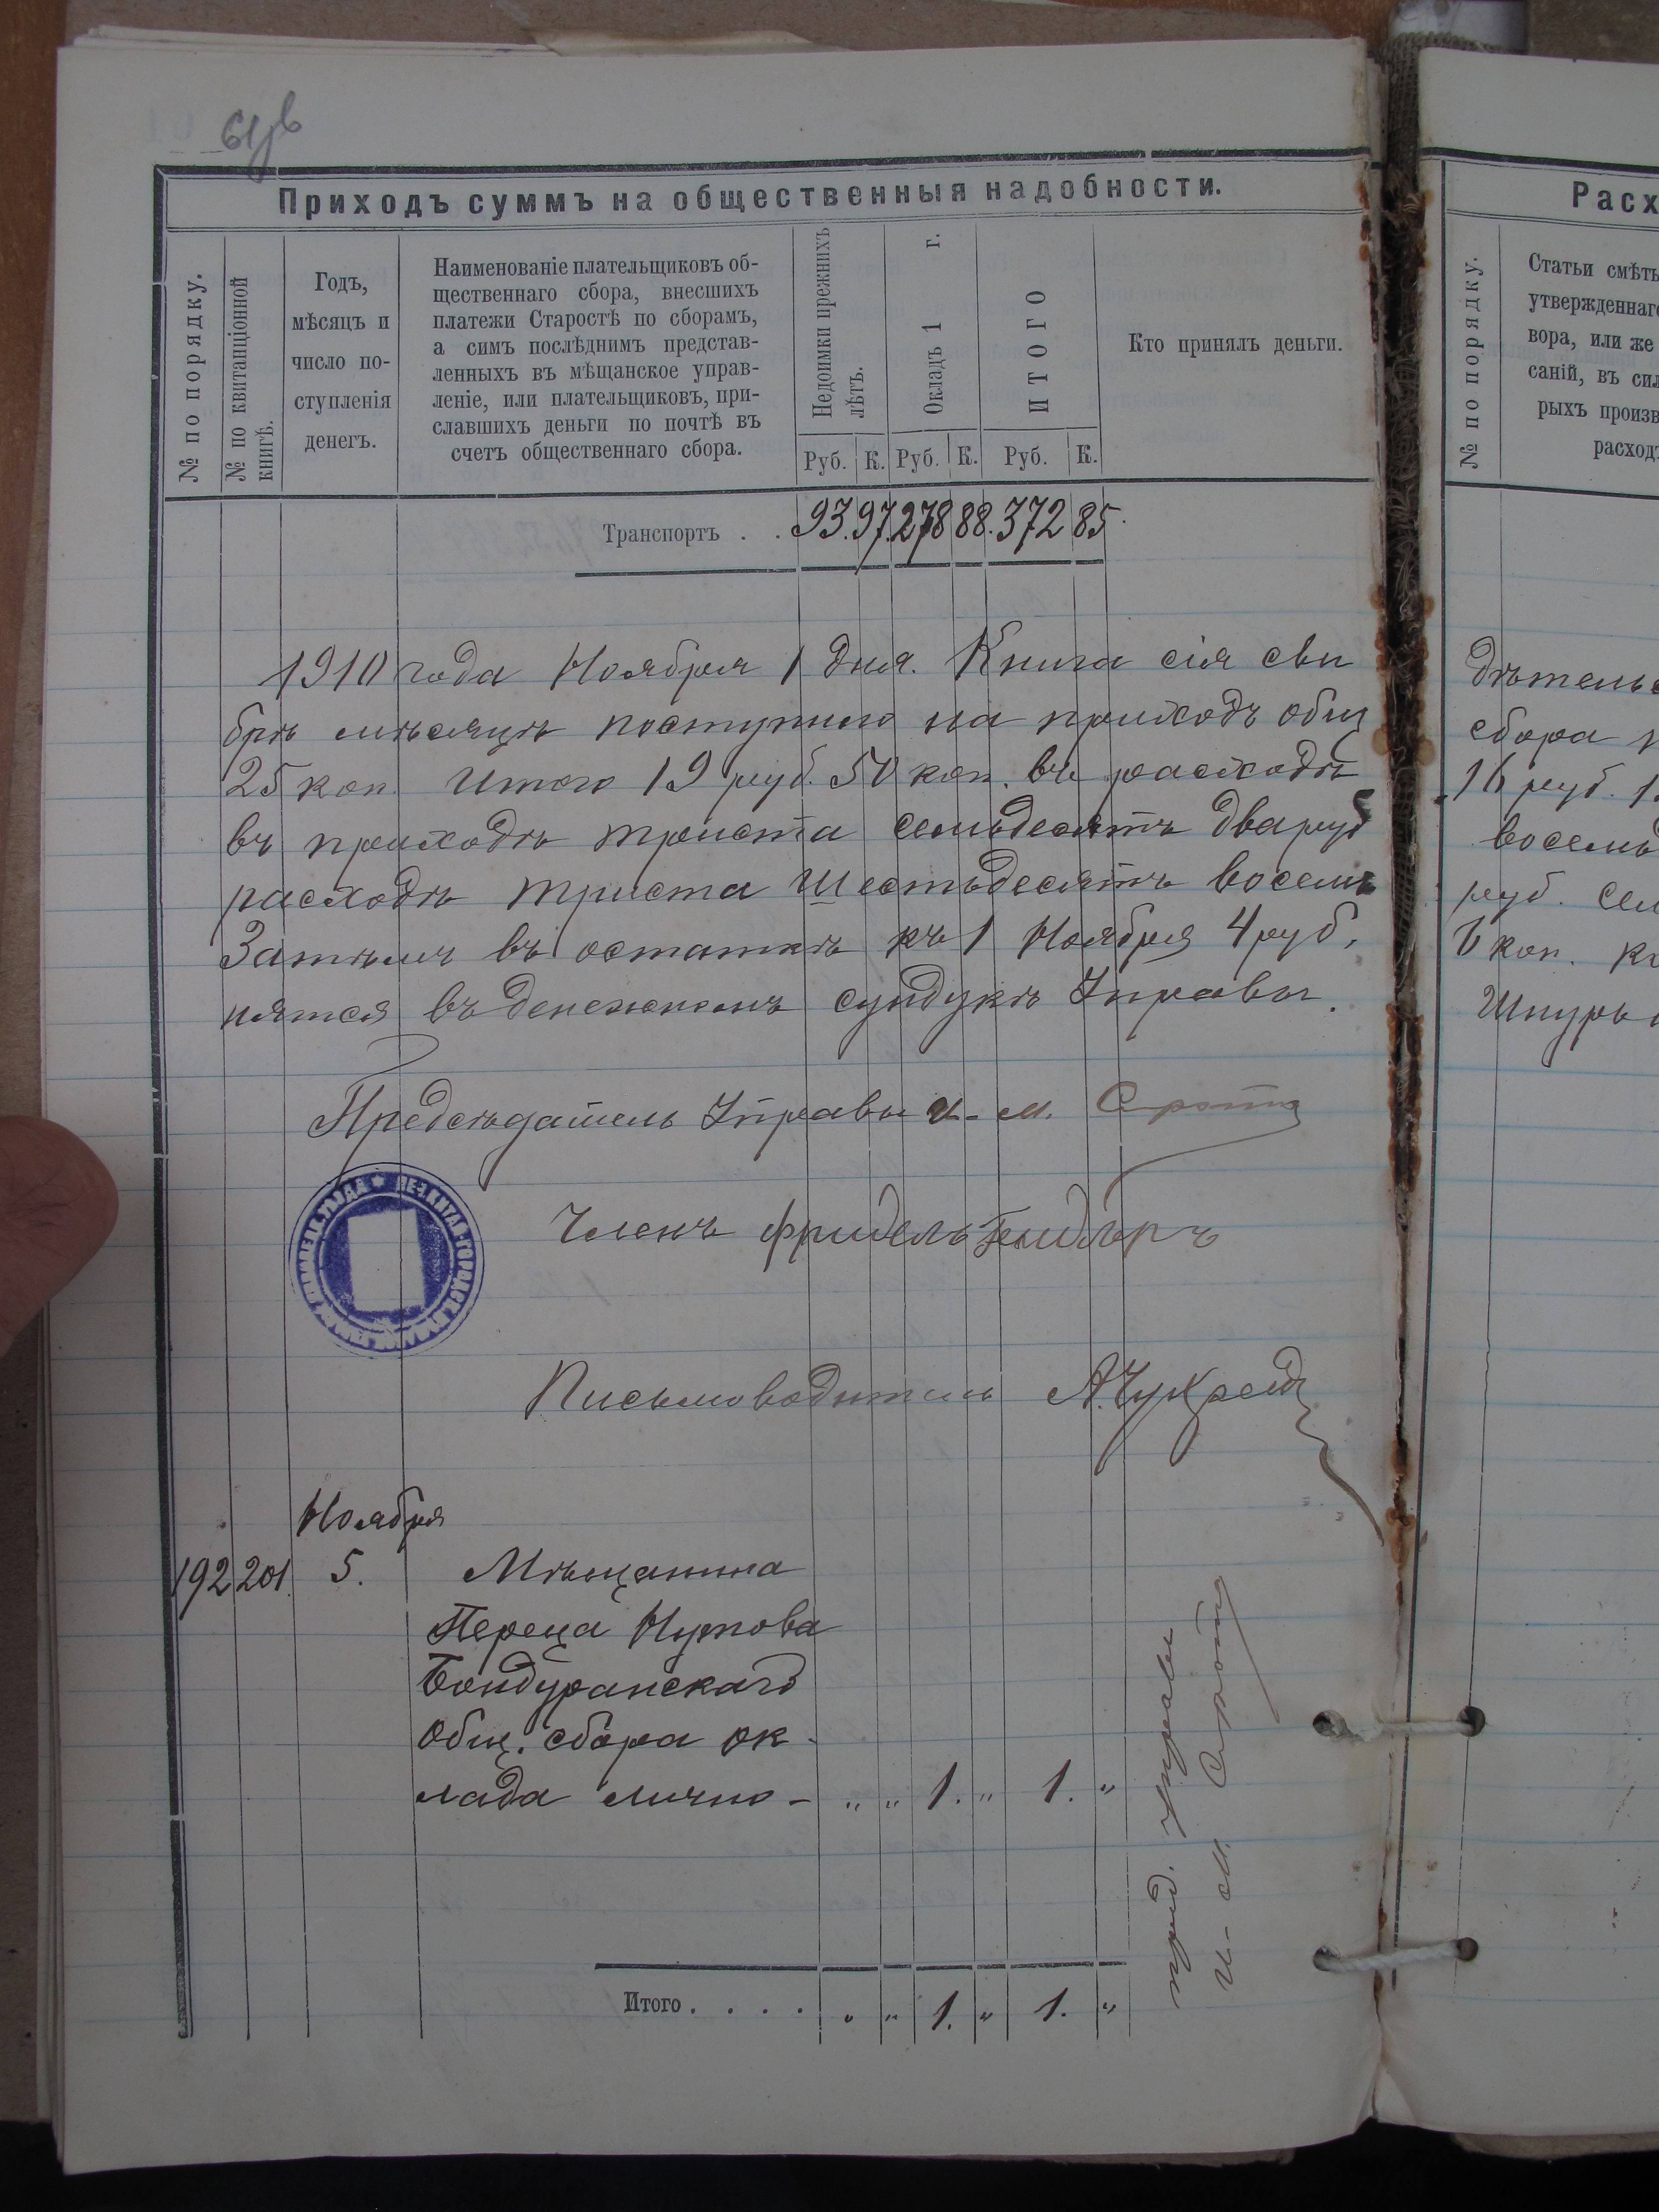 61 об
Приходъ суммъ на общественныя надобности.
№ по порядку.
№ по квитанціонной книгѣ.
Годъ,
мѣсяцъ и
число по-
ступленія
денегъ.
Наименованіе плательщиковъ об-
щественнаго сбора, внесшихъ
платежи Старостѣ по сборамъ,
а симъ послѣднимъ представ-
ленныхъ въ мѣщанское управ-
леніе, или плательщиковъ, при-
славшихъ деньги по почтѣ въ
счетъ общественнаго сбора.
Недоимки прежнихъ лѣтъ.
Окладъ 1 г.
ИТОГО
Руб. К. Руб. К. Руб. К.
Кто принялъ деньги.
Транспортъ . . 93. 97. 278 88. 372 85.
1910 года Ноября 1 дня. Книга сія сви
брѣ мѣсяцѣ поступило на приходъ общ
25 коп. Итого 19 руб. 50 коп. въ расходѣ
въ приходѣ триста семьдесятъ два руб
расходѣ триста шестьдесятъ восемь
Затѣмъ въ остаткѣ къ 1 Ноября 4 руб.
нятся въ денежномъ сундукѣ Управы.
Предсѣдатель Управы И-М. Сротъ
Членъ Фридель
Письмоводитель
Ноября
192 201. 5. Мѣщанина
Переца Нутова
Бондуранскаго
Общ. сбора ок-
лада лично - " " 1. " 1. "
пред. Управы
И-М. Сротъ
Итого . . . . " " 1. " 1. "
Расх
№ по порядку.
Статьи смѣты
утвержденнаго
вора, или же
саній, въ сил
рыхъ произв
расход
дѣтельс
сбора
16 руб. 1
восемь
руб. сем
6 коп.
Шнуръ